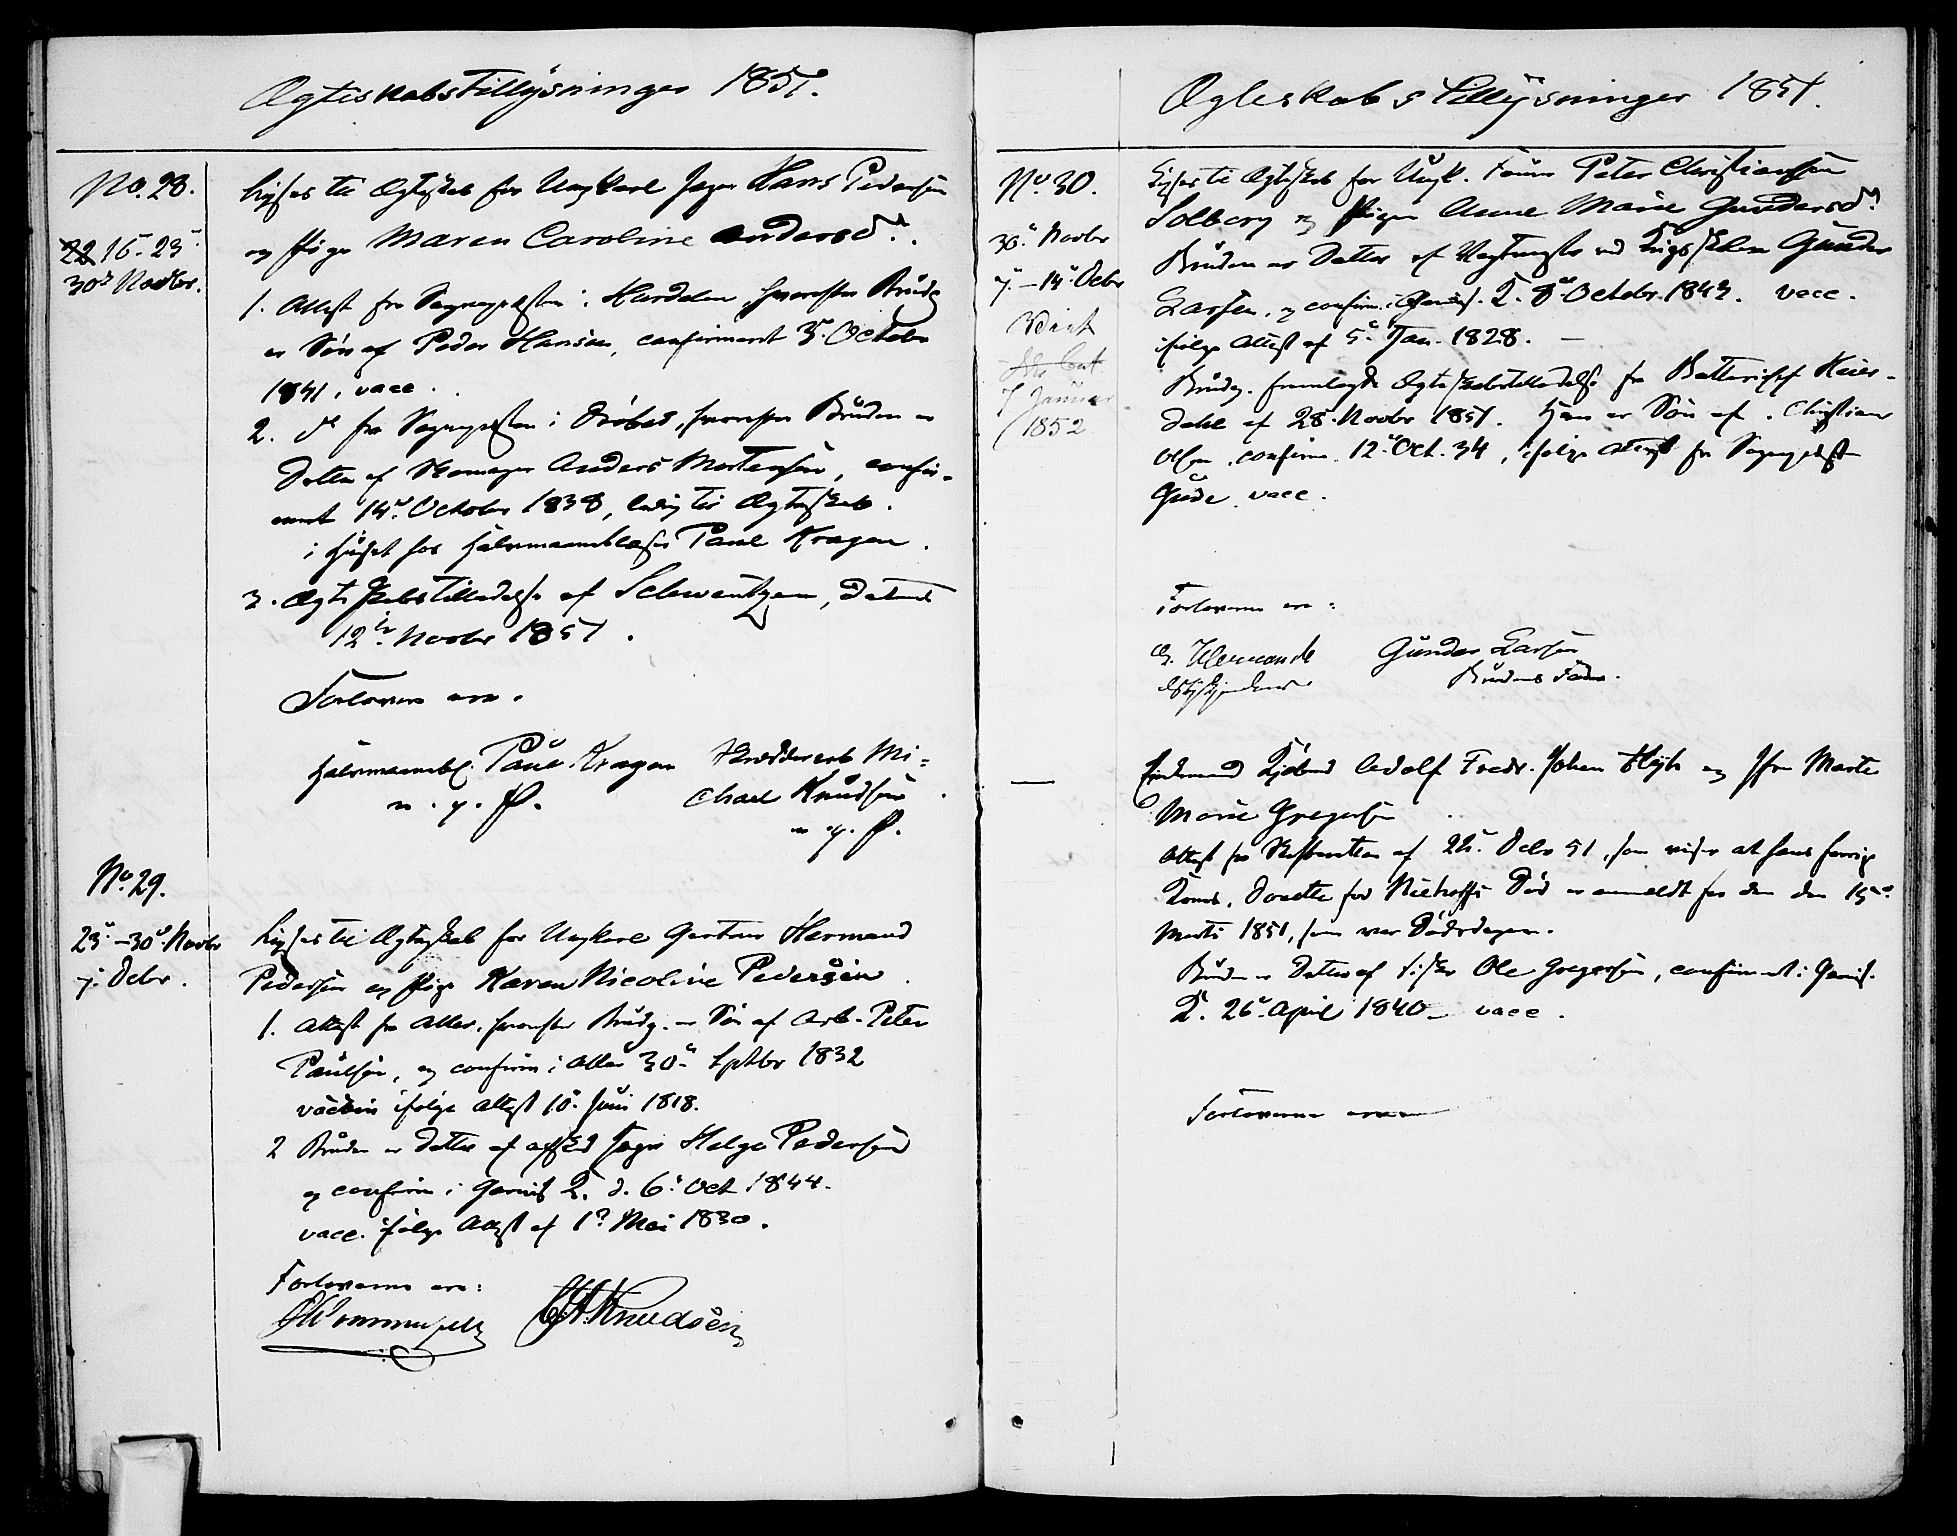 Ægteskabstillysninger 1851.
No. 28.
22 16 - 23
30te Novbr.
Lyses til Ægteskab for Ungkarl Jæger Hans Pedersen
og Pige Maren Caroline Andersd.
1. Attest fra Sognepræsten i Hurdalen, hvorefter Brudg
er Søn af Peder Hansen, confirmeret 3. October
1841, vacc.
2. do fra Sognepræsten i Drøbak, hvorefter Bruden er
Datter af Skomager Anders Mortensen, confir-
meret 14. October 1838, ledig til Ægteskab.
i Huset hos Halvmaanebl Paul Kragen.
3. Ægteskabstilladelse af Schwentzen, dateret
12te Novbr 1851.
Forlovere ere.
Halvmaanebl. Paul Kragen
m. p. P.
Mi-
chael Knudsen
m. p. P.
No. 29.
23 - 30 Novbr
7. Debr.
Lyses til Ægteskab for Ungkarl Gartner Hermand
Pedersen og Pige Karen Nicoline Pedersen
1. Attest fra Aker, hvorefter Brudg. er Søn af Arb. Peter
Paulsen, og confirm i Aker 30. Septbr 1832
vaccin ifølge Attest 10. Juni 1818.
2 Bruden er Datter af afsked Jæger Helge Pedersen
og confirm i Garnis K. d. 6. Oct 1844.
vacc. ifølge Attest af 1 Mai 1830.
Forloverne ere:
Knudsen
Ægteskabstillysninger 1851.
No 30.
30. Novbr
7. - 14. Debr
Viet
7 Januar
1852
Lyses til Ægteskab for Ungk. Peter Christiansen
Solberg og Pigen Anne Marie Gundersd.
Bruden er Datter af Vagtmester ved Krigsskolen Gunder
Larsen, og confirm. i Garnis. K. 8 Octobr. 1843. vacc.
ifølge Attest af 5. Jan. 1828.
Brudg. fremlagde Ægteskabstilladelse fra Batterichef Keier-
dahl af 28. Novbr 1851. Han er Søn af Christian
Olsen, confirm. 12. Oct. 34, ifølge Attest fra Sognepræst
Gude. vacc.
Forloverne ere:
Gunder Larsen
Brudens Fader.
Enkemand Adolf Fredr. Johan og Jfr Marte
Marie Gregersen
Attest fra Skifteretten af 22. Debr 51, som viser at hans forrige
Kones, Død er anmeldt for den den 15
Marts 1851, som var Dødsdagen.
Bruden er Datter af Fisker Ole Gregersen, confirmeret i Garnis.
K. 26. April 1840 - vacc.
Forloverne ere